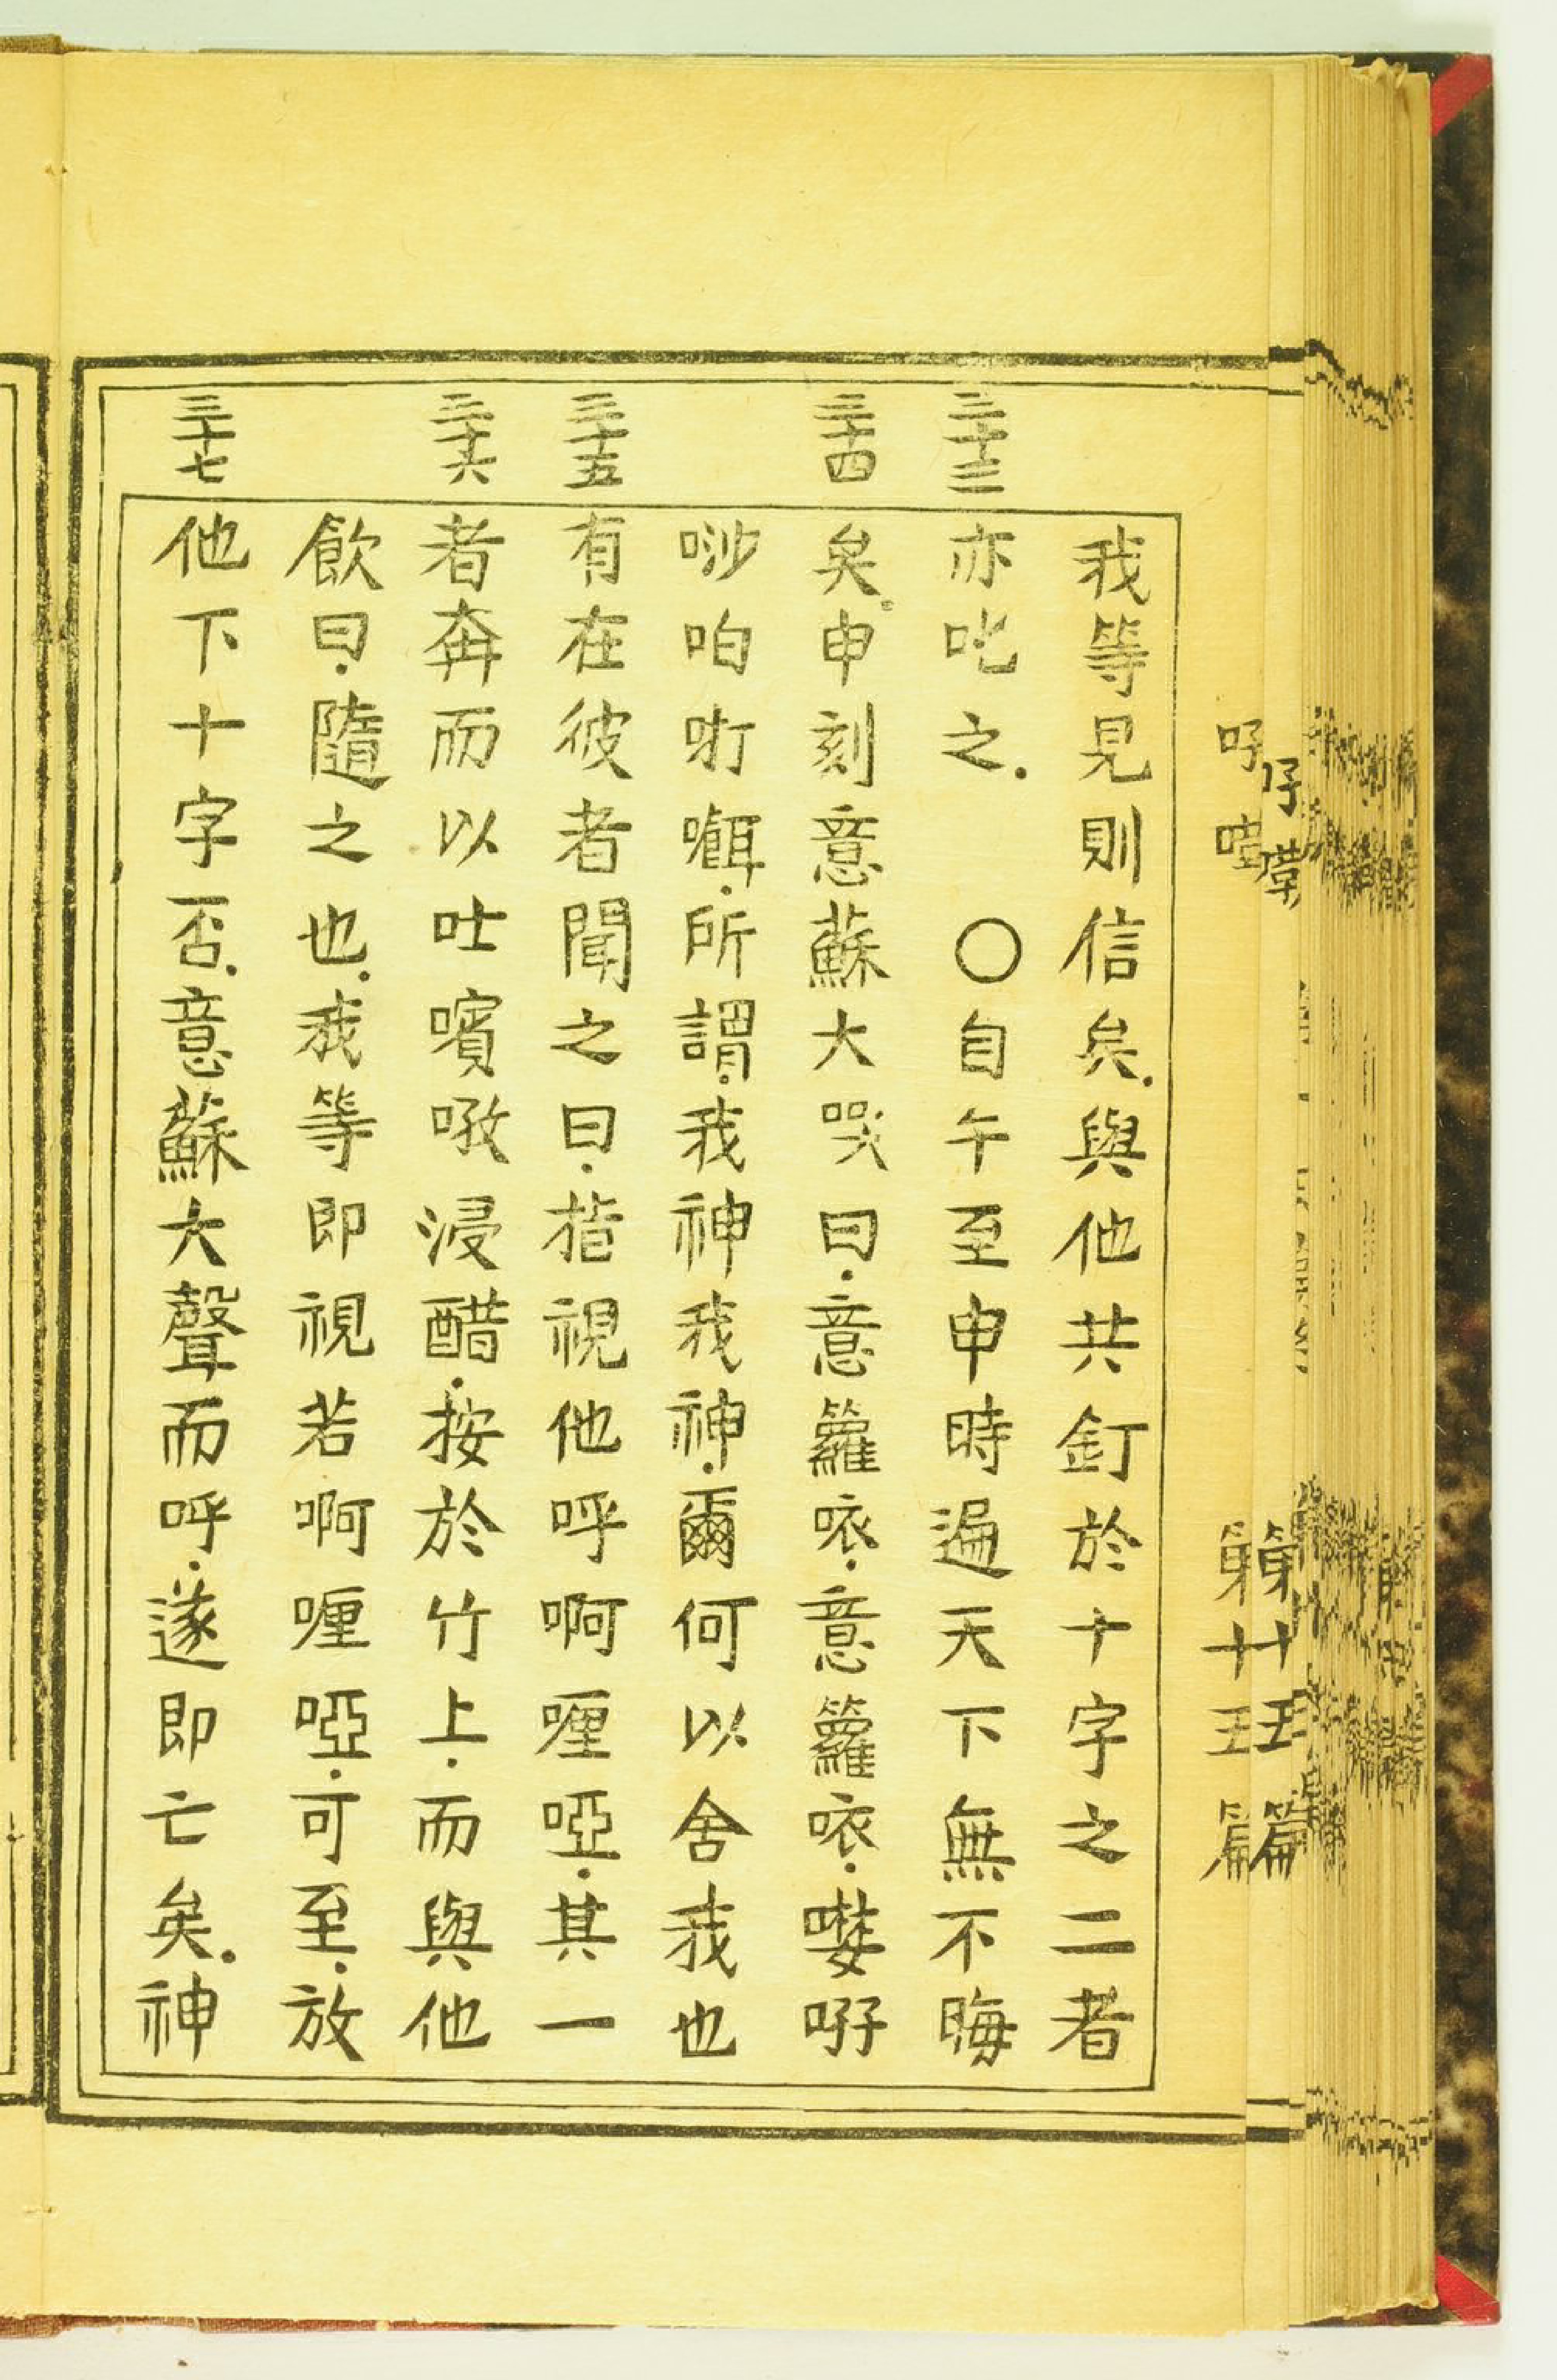 我等見則信矣.與他共釘於十字之二者
三十三
亦叱之.〇自午至申時遍天下無不晦
三十四
矣。申刻意蘇大哭曰.意籮㕈.意籮㕈.㘔哷
唦咱㖄嚯.所謂.我神我神.爾何以舍我也
三十五
有在彼者聞之曰.指視他呼啊喱啞.其一
三十六
者奔而以吐嚬噋浸醋.按於竹上.而與他
飲曰.隨之也.我等即視若啊喱啞.可至.放
三十七
他下十字否.意蘇大聲而呼.遂即亡矣.神
第十五篇